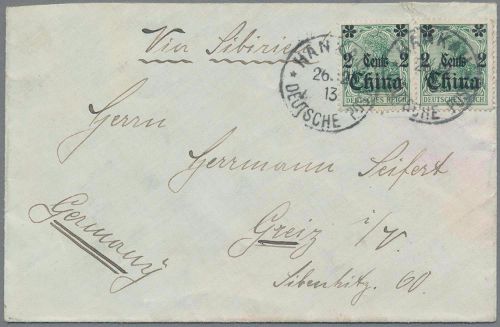 Via Sibirien
HANKAU
26.
13
DEUTSCHE P
2 Cents 2
China
DEUTSCHES REICH
2 Cents 2
China
DEUTSCHES REICH
Herrn
Herrmann Seifert
Germany
Greiz i/V.
60